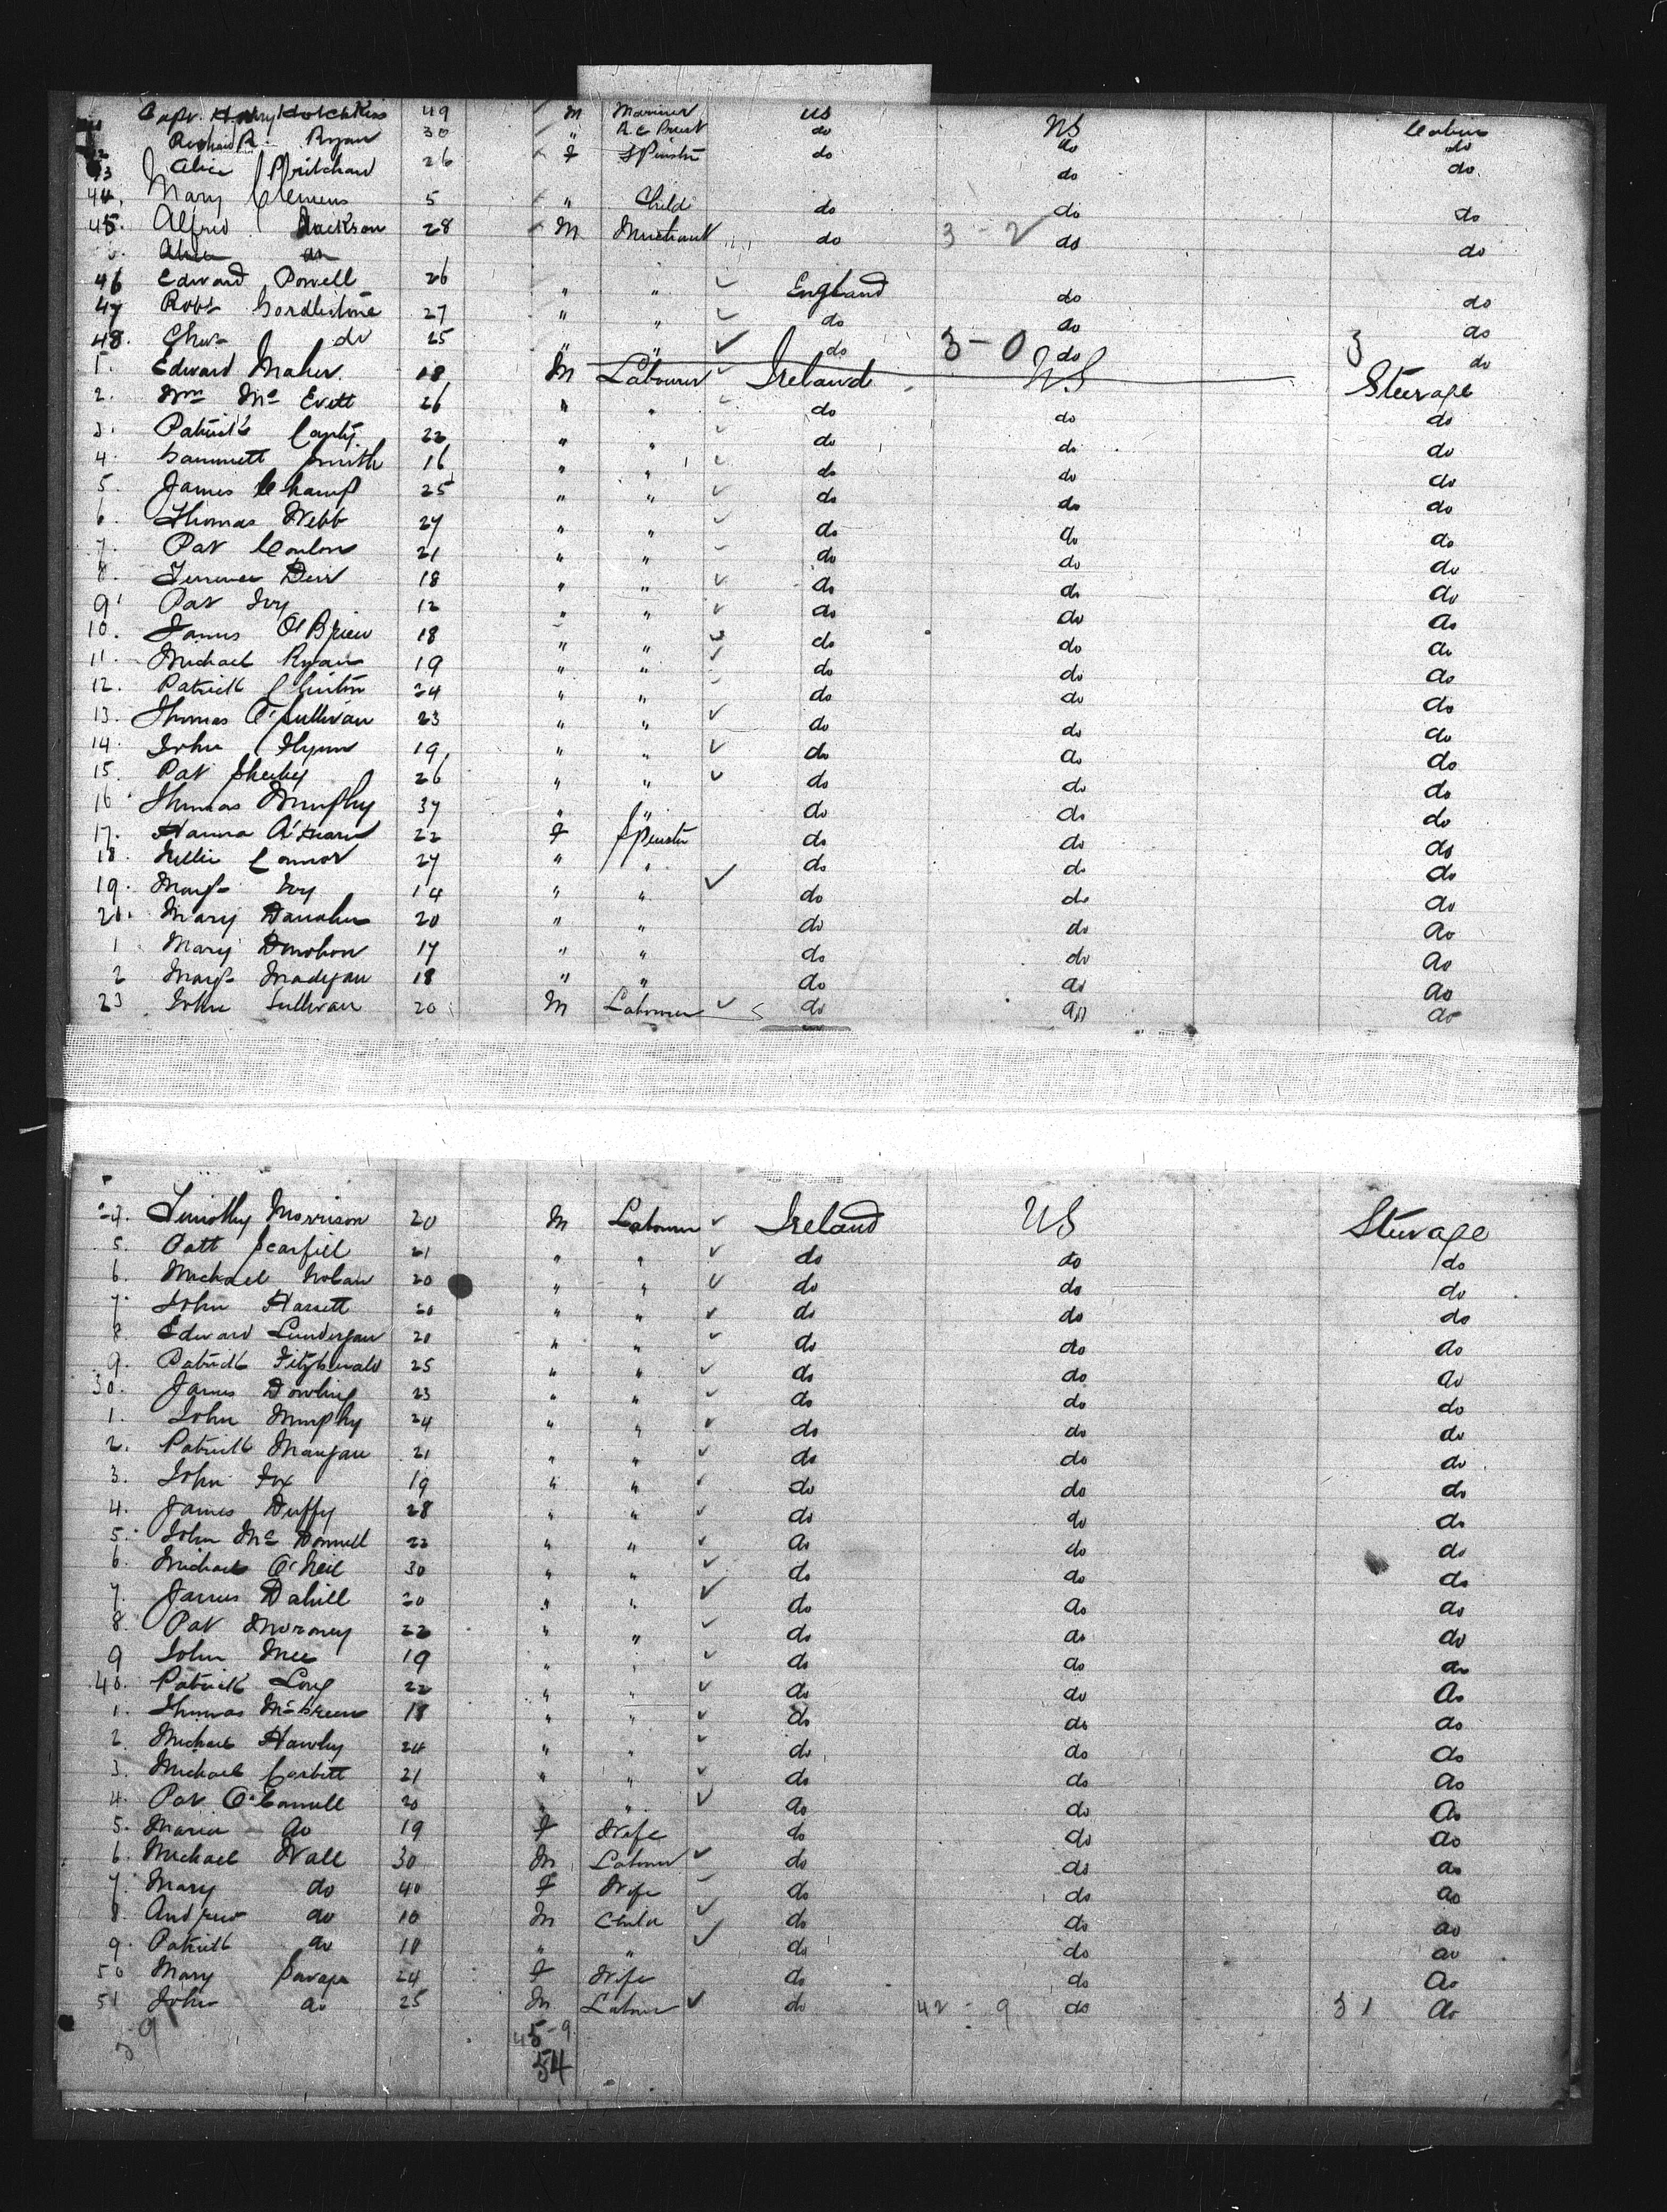 Capt. Henry Hotchkiss 49 M Mariner US US Cabin
Richard R. Ryan 30 " R C Priest do do do
43 Alice Pritchard 26 F Spinster do do do
44. Mary Clemens 5 " Child do do do
45. Alfred Jackson 28 M Merchant do 3 - 2 do do
Alice do
46 Edward Powell 26 " " England do do
47 Robt Girdlestone 27 " " do do do
48. Chas do 25 " " do 3 - 0 do 3 do
1. Edward Maher 18 M Labourer Ireland US Steerage
2. Wm Mc Evett 26 " " do do do
3. Patrick Canty 22 " " do do do
4. Smith 16 " " do do do
5. James Champ 25 " " do do do
6. Thomas Webb 27 " " do do do
7. Pat Conlon 21 " " do do do
8. Terrence 18 " " do do do
9. Pat Ivy 12 " " do do do
10. James O'Brien 18 " " do do do
11. Michael Ryan 19 " " do do do
12. Patrick Clinton 24 " " do do do
13. Thomas O'Sullivan 23 " " do do do
14. John Flynn 19 " " do do do
15. Pat Sheehy 26 " " do do do
16. Thomas Murphy 37 " " do do do
17. Hanna 22 F Spinster do do do
18. Nellie Connor 27 " " do do do
19. Margt Ivy 14 " " do do do
20. Mary Danaher 20 " " do do do
1 Mary Donohon 17 " " do do do
2 Margt Madigan 18 " " do do do
23 John Sullivan 20 M Labourer do do do
24. Timothy Morrison 20 M Labourer Ireland US Steerage
5. Patt 21 " " do do do
6. Michael Nolan 20 " " do do do
7. John Hassett 20 " " do do do
8. Edward Lundergan 20 " " do do do
9. Patrick Fitzgerald 25 " " do do do
30. James Dowling 23 " " do do do
1. John Murphy 24 " " do do do
2. Patrick Mangan 21 " " do do do
3. John Fox 19 " " do do do
4. James Duffy 28 " " do do do
5. John Mc Donnell 22 " " do do do
6. Michael O'Neil 30 " " do do do
7. James Dahill 20 " " do do do
8. Pat Moroney 22 " " do do do
9 John Mee 19 " " do do do
40. Patrick Long 22 " " do do do
1. Thomas McGreen 18 " " do do do
2. Michael Hawley 24 " " do do do
3. Michael Corbett 21 " " do do do
4. Pat O'Connell 20 " " do do do
5. Maria do 19 F Wife do do do
6. Michael Wall 30 M Labour do do do
7. Mary do 40 F Wife do do do
8. Andrew do 10 M Child do do do
9. Patrick do 10 " " do do do
50 Mary Savage 24 F Wife do do do
51 John do 25 M Labour do 42 - 9 do 31 do
45-9
54